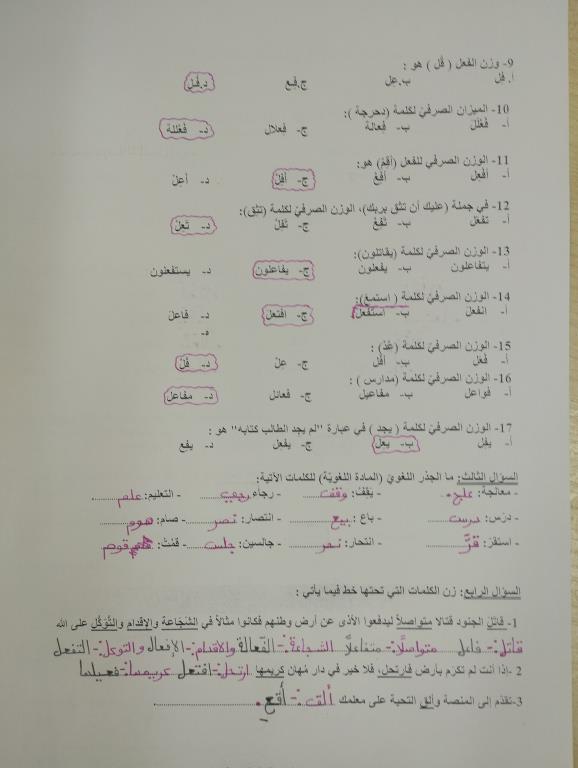 9- وزن الفعل ( قُل ) هو :
أ. فِل ب. عِل ج. فِع د. فُل
10- الميزان الصرفي لكلمة (دحرجة ):
أ- فَعْلَلَ ب- فِعالة ج- فِعلال د- فَعْللة
11- الوزن الصرفي للفعل (أقِمْ) هو:
أ- أفْعِل ب- أفِعْ ج- أفِلْ د- أعِلْ
12- في جملة (عليك أن تثق بربك)، الوزن الصرفيّ لكلمة (تثق):
أ- تفعْل ب- تَفِعْ ج- تَفِلْ د- تَعِلْ
13- الوزن الصرفيّ لكلمة (يقاتلون):
أ- يتفاعلون ب- يفعلون ج- يفاعلون د- يستفعلون
14- الوزن الصرفيّ لكلمة ( استمعَ):
أ- انفعل ب- استفعل ج- افتعل د- فاعل
ه-
15- الوزن الصرفيّ لكلمة (عُدْ) :
أ- فَعْل ب- أفُل ج- عِلْ د- فُلْ
16- الوزن الصرفيّ لكلمة (مدارس ) :
أ- فواعل ب- مفاعيل ج- فعائل د- مفاعل
17- الوزن الصرفيّ لكلمة ( يجد ) في عبارة "لم يجد الطالب كتابه" هو :
أ- يفِل ب- يعِل ج- يفعِل د- يفِع
السؤال الثالث: ما الجذر اللغويّ (المادة اللغويّة) للكلمات الآتية:
- معالجة: علج - يَقِفُ: وقف - رجاء: - التعليم: علم
- درَس: درس - باع : بيع - انتصار: نصر - صام: صوم
- استقرّ: قرّ - انتحار: نحر - جالسين: جلس - قمْتُ: قوم
السؤال الرابع: زن الكلمات التي تحتها خط فيما يأتي :
1- قاتل الجنود قتالا متواصلاً ليدفعوا الأذى عن أرض وطنهم فكانوا مثالاً في الشّجَاعة والإقدام والتّوكّل على الله
قاتل:- فاعل متواصلًا:- متفاعلًا الشجاعة:- الفَعالة والاقدام:- الإفعال والتوكل:- التفعل
2 -إذا أنت لم تكرم بأرض فارتحل، فلا خير في دار مُهان كريمها ارتحل:- افتعل كريمها:- فعيلها
3-تقدّم إلى المنصة وألقِ التحية على معلمك ألق:- أفعِ.